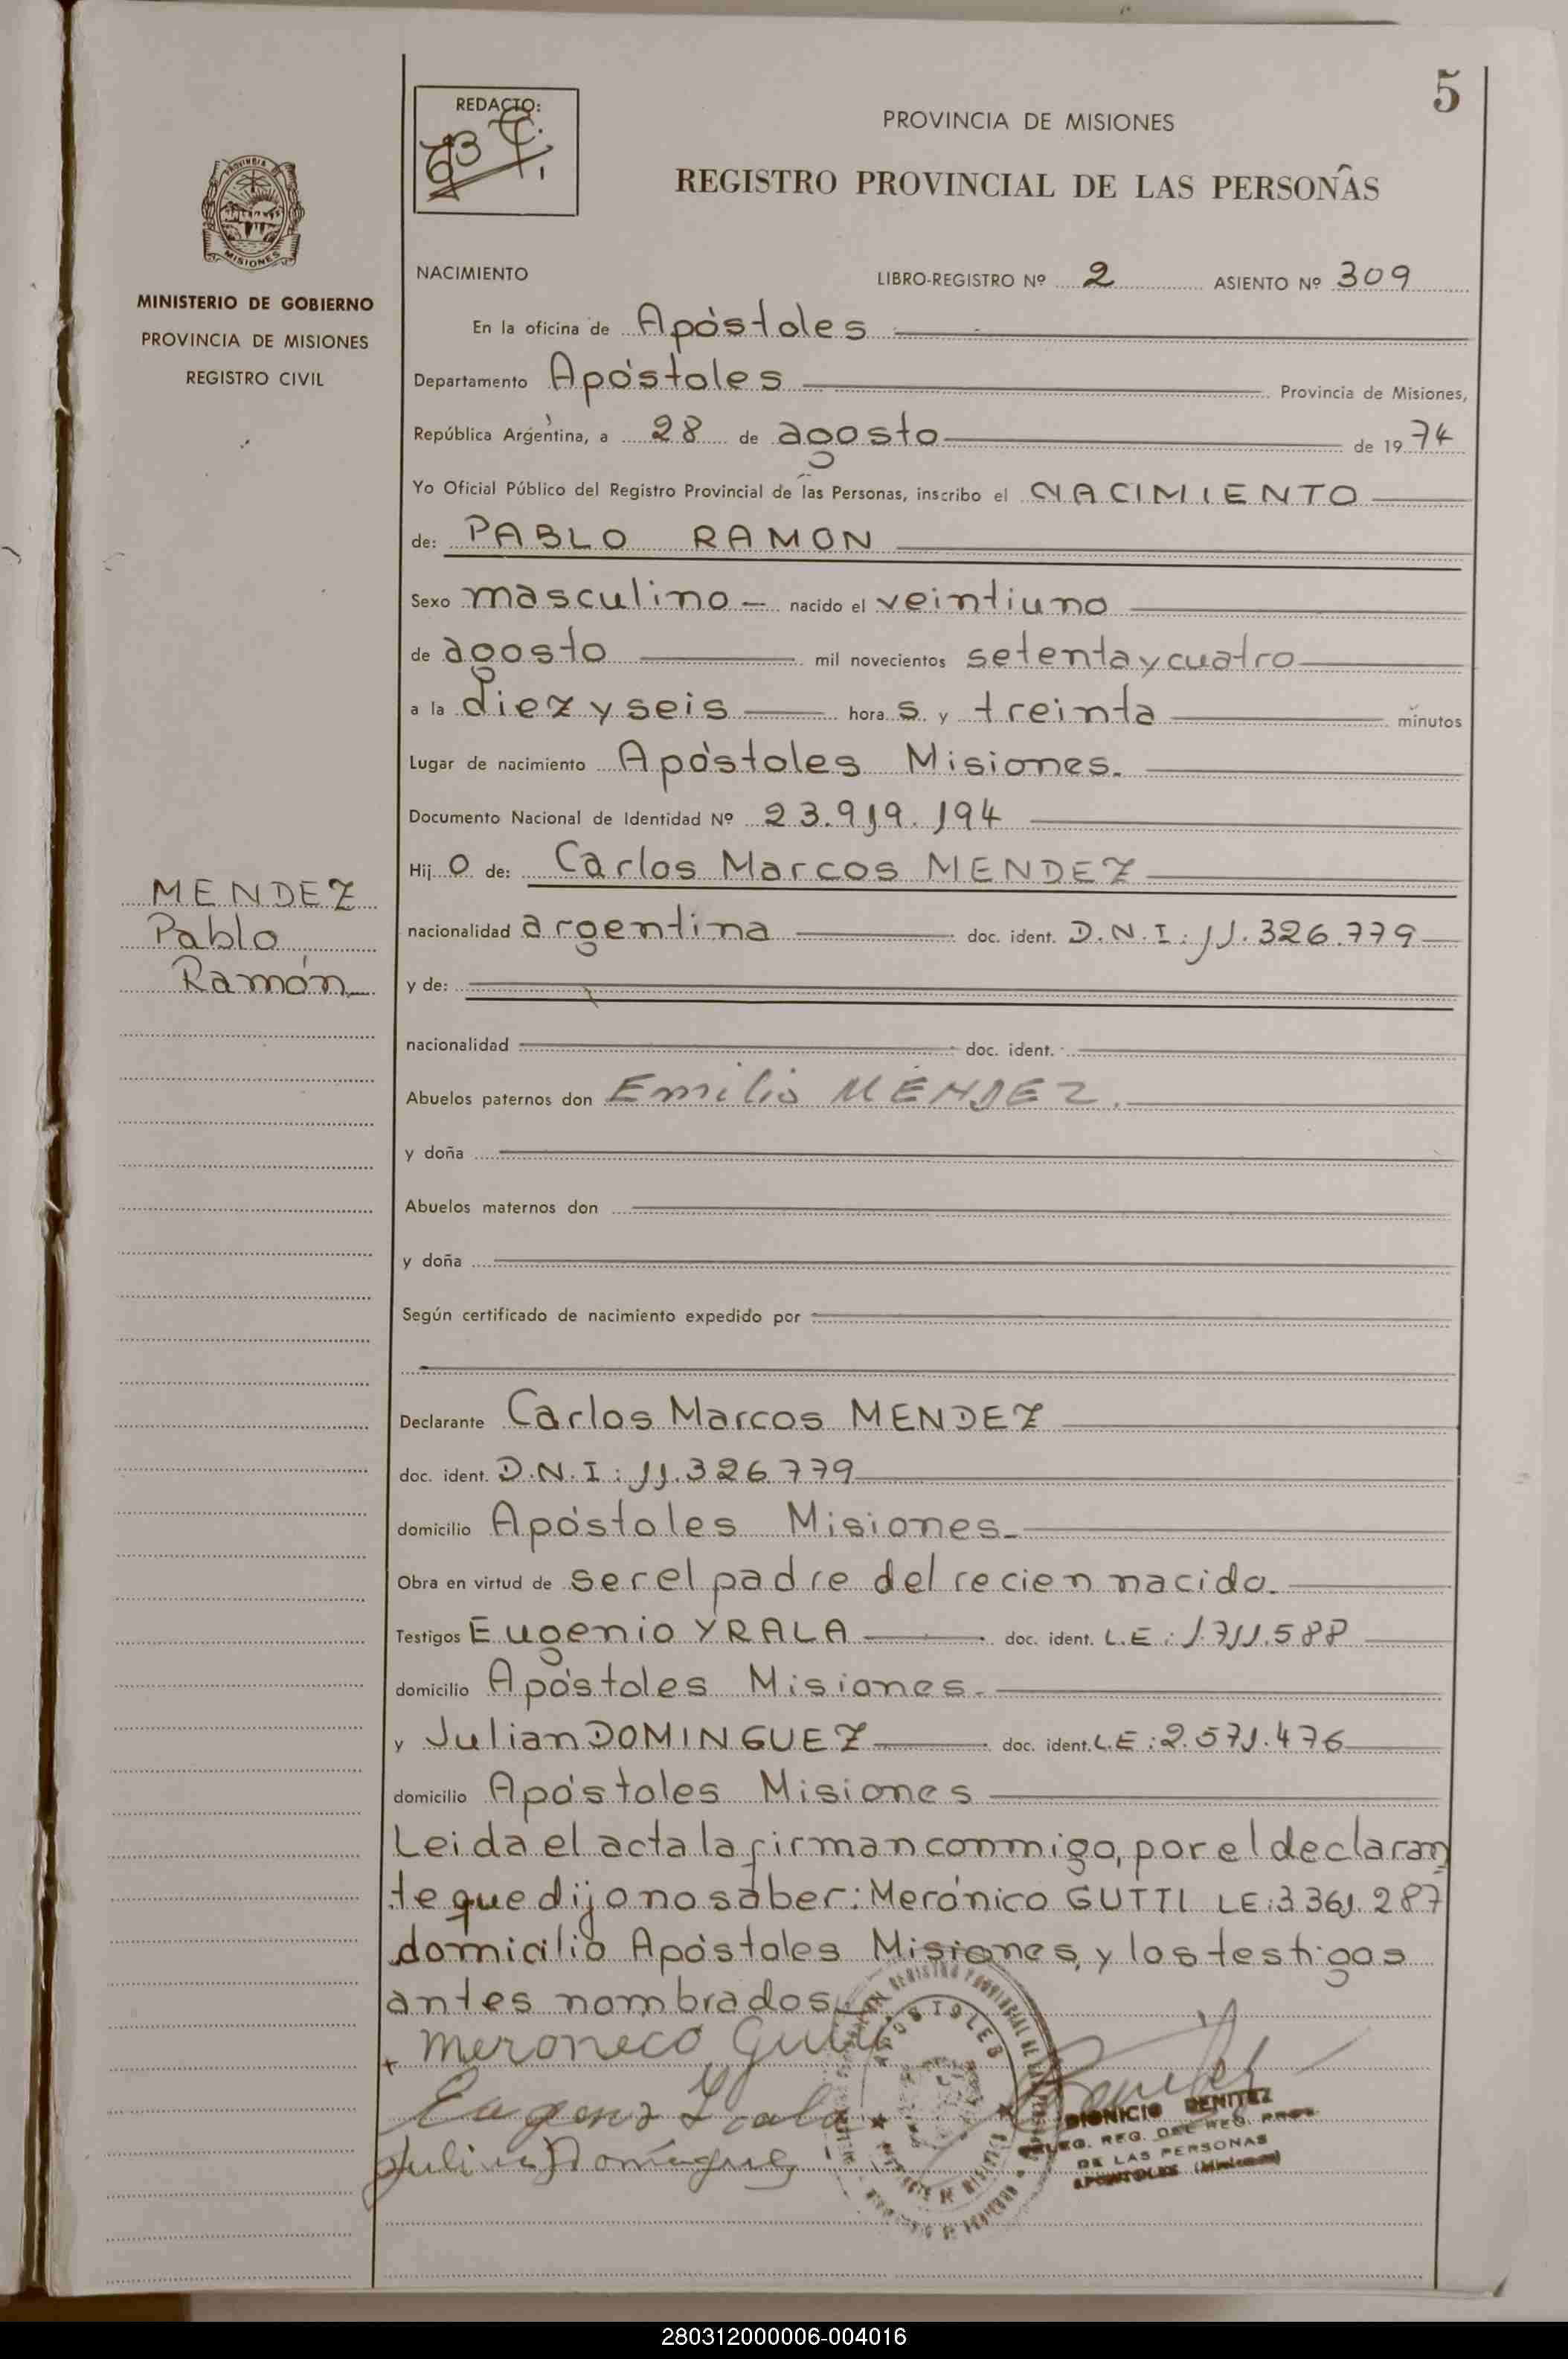 5
REDACTO:
PROVINCIA DE MISIONES
REGISTRO PROVINCIAL DE LAS PERSONAS
PROVINCIA
MISIONES
MINISTERIO DE GOBIERNO
PROVINCIA DE MISIONES
REGISTRO CIVIL
NACIMIENTO LIBRO-REGISTRO Nº 2 ASIENTO Nº 309
En la oficina de Apóstoles
Departamento Apóstoles Provincia de Misiones,
República Argentina, a 28 de agosto de 1974
Yo Oficial Público del Registro Provincial de las Personas, inscribo el NACIMIENTO
de: PABLO RAMON
Sexo masculino nacido el veintiuno
de agosto mil novecientos setenta y cuatro
a la diez y seis hora s y treinta minutos
Lugar de nacimiento Apóstoles Misiones.
Documento Nacional de Identidad Nº 23.919.194
Hij o de: Carlos Marcos MENDEZ
MENDEZ
Pablo
Ramón
nacionalidad argentina doc. ident. D.N.I: 11.326.779
y de:
nacionalidad doc. ident.
Abuelos paternos don Emilio MÉNDEZ.
y doña
Abuelos maternos don
y doña
Según certificado de nacimiento expedido por
Declarante Carlos Marcos MENDEZ
doc. ident. D.N.I: 11.326.779
domicilio Apóstoles Misiones
Obra en virtud de ser el padre del recien nacido.
Testigos Eugenio YRALA doc. ident. L.E: 1.711.588
domicilio Apóstoles Misiones.
y Julian DOMINGUEZ doc. ident. L.E: 2.571.476
domicilio Apóstoles Misiones
Leida el acta la firman conmigo, por el declaran
te que dijo no saber: Merónico GUTTI LE: 3.361.287
domicilio Apóstoles Misiones, y los testigos
antes nombrados
Meroneco
Julian Dominguez
APOSTOLES
DIONICIO BENITEZ
DELEG. REG. DEL REG. PROV.
DE LAS PERSONAS
APOSTOLES (Misiones)
280312000006-004016